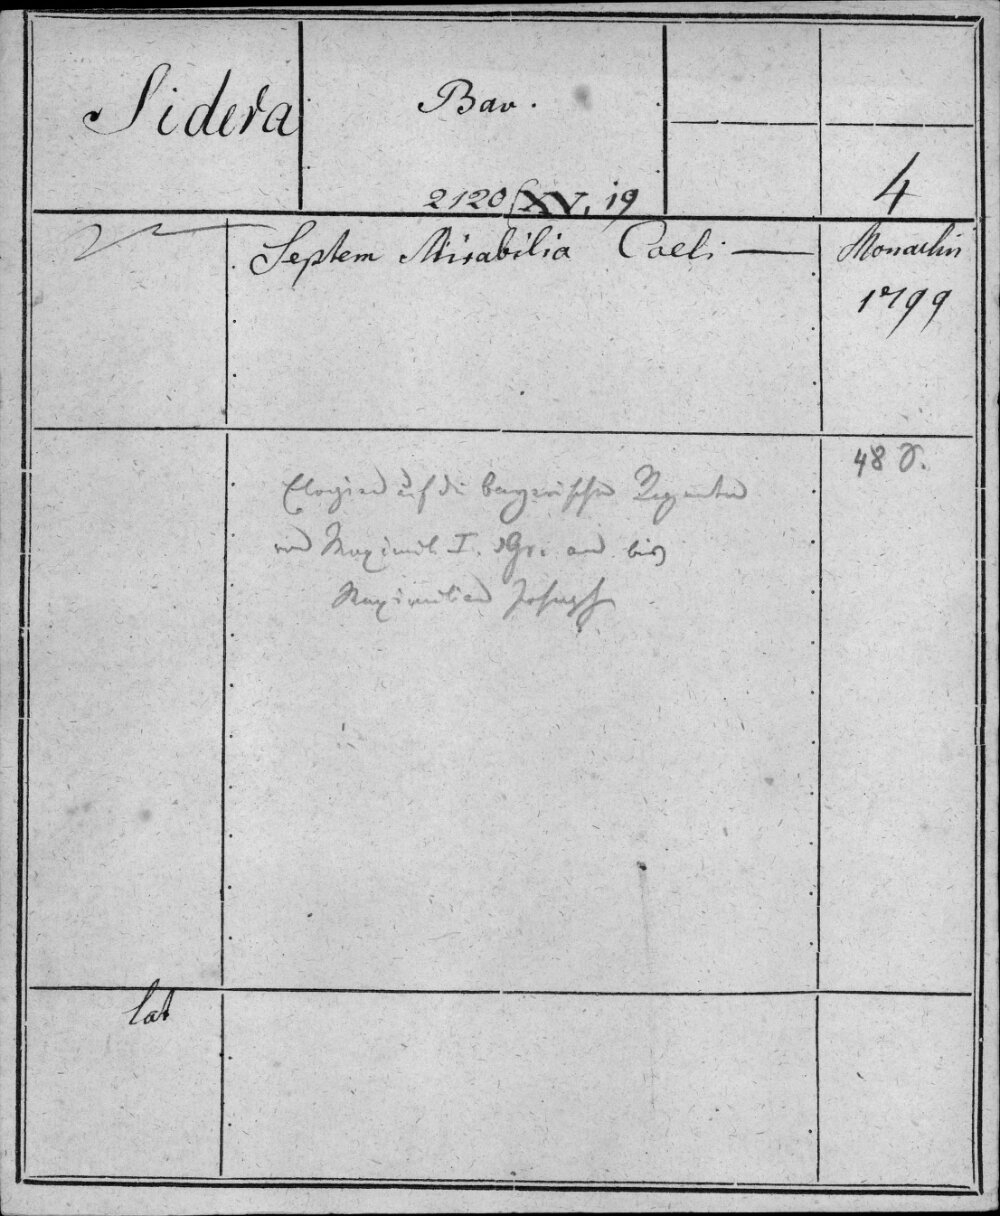 Sidera
Bav.
2120 XV, 19
4
Septem Mirabilia Coeli —
Monachii
1799
48 S.
Elogien auf die bayerischen Regenten
von Maximil. I. an bis
Maximilian Joseph
lat